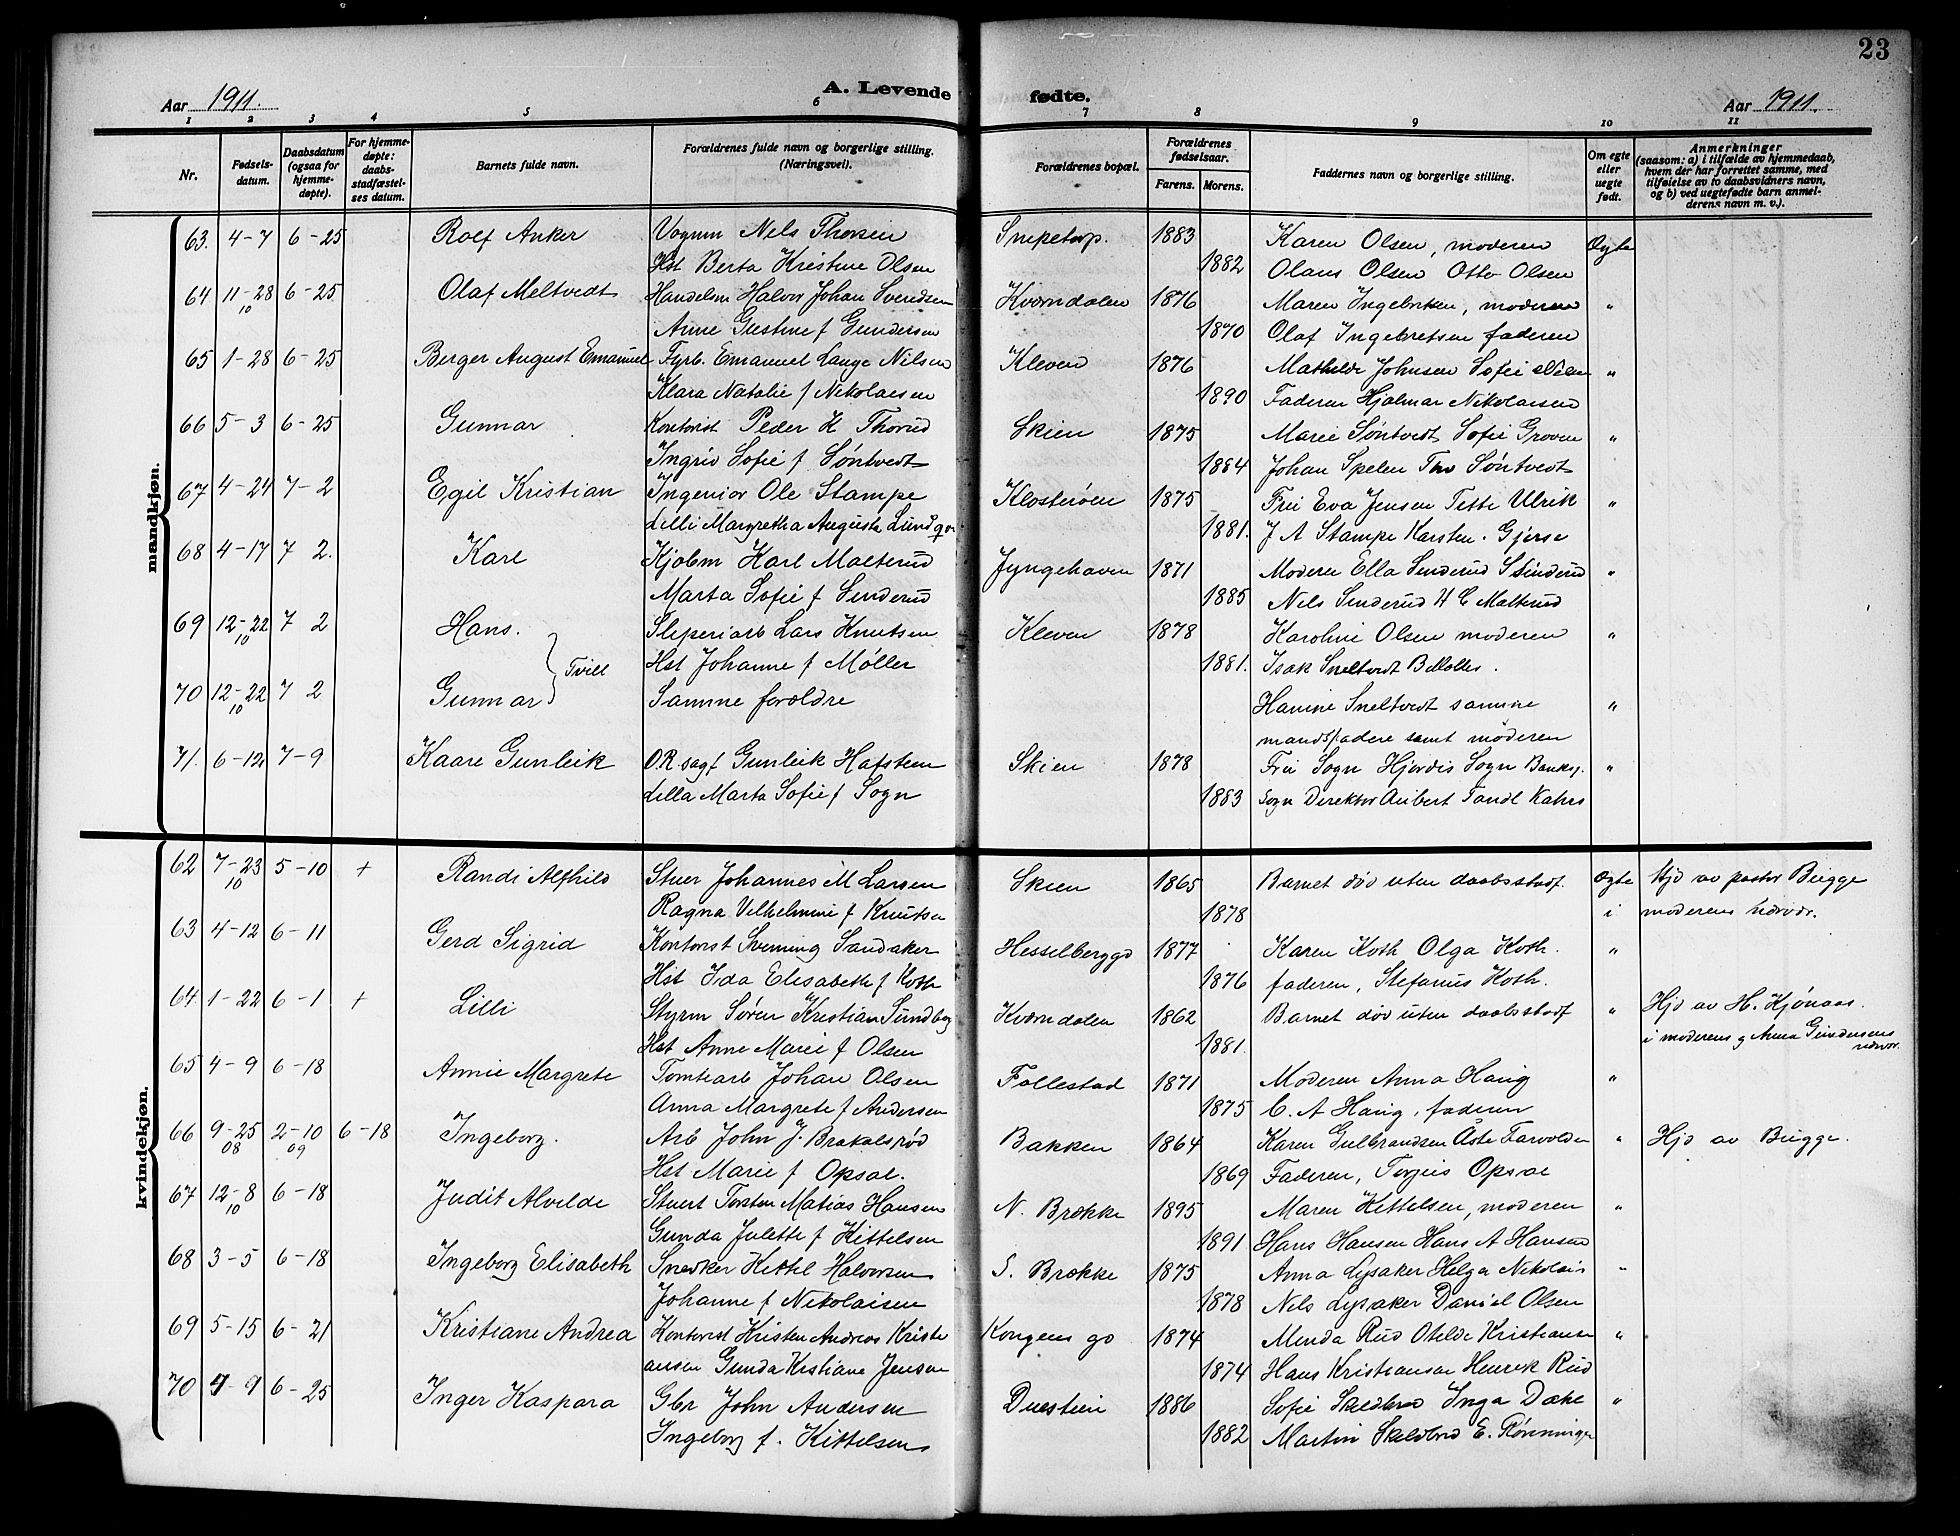 23
A. Levende fødte.
Aar 1911.
Aar 1911.
1 2 3 4 5 6 7 8 9 10 11
Nr.
Fødsels-datum.
Daabsdatum (ogsaa for hjemme-døpte).
For hjemme-døpte: daabs-stadfæstel-ses datum.
Barnets fulde navn.
Forældrenes fulde navn og borgerlige stilling. (Næringsvei).
Forældrenes bopæl.
Forældrenes fødselsaar.
Farens. Morens.
Faddernes navn og borgerlige stilling.
Om egte eller uegte født.
Anmerkninger (saasom: a) i tilfælde av hjemmedaab, hvem der har forrettet samme, med tilføielse av to daabsvidners navn, og b) ved uegtefødte barn anmel-derens navn m. v.).
mandkjøn.
63. 4-7 6-25 Rolf Anker Vognm Nels Thorsen Snipetorp. 1883 Karen Olsen, moderen Ægte
Hst Berta Kristine Olsen 1882 Olaus Olsen Otto Olsen
64 11-28 10 6-25 Olaf Meltvedt Handelsm Halvor Johan Svendsen Kværndalen 1876 Maren Ingebritsen, moderen "
Anne Gustine f Gundersen 1870 Olaf Ingebretsen faderen
65 1-28 6-25 Berger August Emanuel Fyrb. Emanuel Lauge Nilsen Kleven 1876 Mathilde Johnsen Sofie "
Klara Natalie f Nikolaisen 1890 Faderen Hjalmar Nikolaisen
66 5-3 6-25 Gunnar Kontorist Peder H Thorud Skien 1875 Marie Söntvedt Sofie Groven "
Ingrid Sofie f Söntvedt 1884 Johan Spelen Söntvedt
67 4-24 7-2 Egil Kristian Ingeniør Ole Stampe Klosterøen 1875 Fru Eva Jensen Tette Ulrik "
Lilli Margretha Augusta 1881. J A Stampe Karsten Gjerse
68 4-17 7 2. Kare Kjøbm Karl Malterud Jyngehaven 1871 Moderen Ella Sinderud "
Marta Sofie f Sinderud 1885 Nels Sinderud Malterud
69 12-22 10 7 2 Hans. Sliperiarb Lars Knutsen Kleven 1878 Karoline Olsen moderen "
Tvill Hst Johanne f Møller 1881. Isak Sneltvedt
70 12-22 10 7 2 Gunnar Samme forældre Hanine Sneltvedt samme "
mandsfadere samt moderen
71. 6-12 7-9 Kaare Gunleik O.R.sagf Gunleik Hafsten Skien 1878 Fru Sogn Hjørdis Sogn Banksj. "
Lilla Marta Sofie f Sogn 1883 Sogn Direktør Aubert Tandl Kahrs
kvindekjøn.
62 7-23 10 5-10 + Randi Alfhild Stuer Johannes M Larsen Skien 1865 Barnet død uten daabsstadf. Ægte Hjd av pastor Bugge
Ragna Vilhelmine f Knutsen 1878 i moderens nærvær.
63 4-12 6-11 Gerd Sigrid Kontorist Svenning Sandaker Hesselberggd 1877 Karen Koth Olga Koth. "
Hst Ida Elisabeth f Koth 1876 faderen, Stefanus Koth.
64 1-22 6-1 + Lilli Styrm Søren Kristian Sundbg Kværndalen 1862 Barnet død uten daabsstadf " Hjd av H. Kjönaas.
Hst Anne Marie f Olsen 1881. i moderens og Anna Gundersens nærvær.
65 4-9 6-18 Annie Margrete Tomtearb Johan Olsen Follestad 1871 Moderen Anna Haug "
Anna Margrete f Andersen 1875 C. A Haug, faderen
66 9-25 08 2-10 09 6-18 Ingeborg. Arb John J. Brakalsrød Bakken 1864 Karen Gulbrandsen Åste Farvolden " Hjd av Bugge.
Hst Marie f Opsal. 1869 Faderen, Torjus Opsal
67 12-8 10 6-18 Judit Alvilde Stuert Torsten Matias Hansen N. Brække 1895 Maren Kittelsen, moderen "
Gunda Julette f Kittelsen 1891 Hans Hansen Hans A Hansen
68 3-5 6-18 Ingeborg Elisabeth Snedker Kittel Halvorsen S. Brække 1875 Anna Lysaker Helga Nikolais "
Johanne f Nikolaisen 1878 Nels Lysaker Daniel Olsen
69 5-15 6-21 Kristiane Andrea Kontorist Kristen Andreas Kristi Kongens gd 1874 Minda Rud Otelde Kristiansen "
ansen Gunda Kristiane Jensen 1874 Hans Kristiansen Henrik Rud
70 4-9 6-25 Inger Kaspara Gbr John Andersen Duestien 1886 Sofie Skildbred Inga Dake "
Ingeborg f. Kittelsen 1882 Martin Skeldbred E. Rønningen